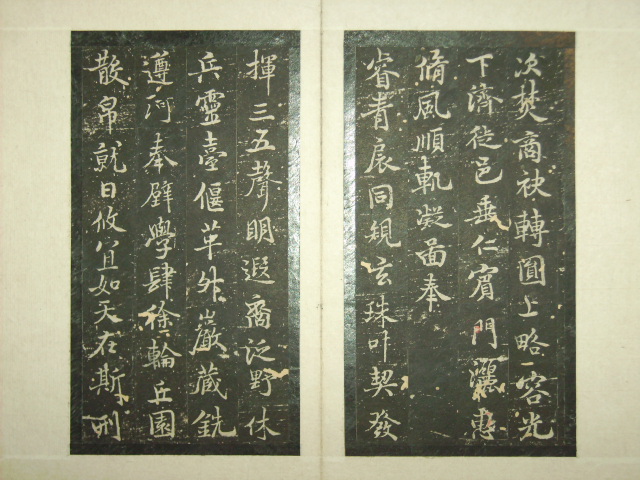 次焚商袂轉圓上略容光
下濟徙邑垂仁賓門灑惠
脩風順軌凝啚奉
睿青扆同規玄珠叶契發
揮三五聲明遐裔泛野休
兵靈臺偃革外巖藏銑
遵河奉璧學肆徐輪丘園
散帛就日攸宜如天在斯刑